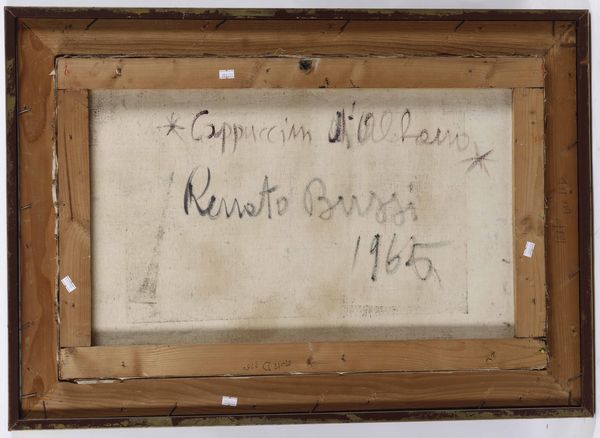 * Cappuccini d'Albano *
Renato Buzzi
1965